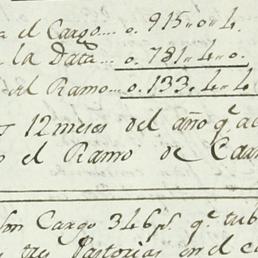 a el Cargo... o. 915 " o " 4.
la Data... o. 781 " 4 " o.
el Ramo... o. 133 " 4 " 4
12 meses del año q.e
o el Ramo de
Cargo 346 p.s q.e
tres Pastorias en el